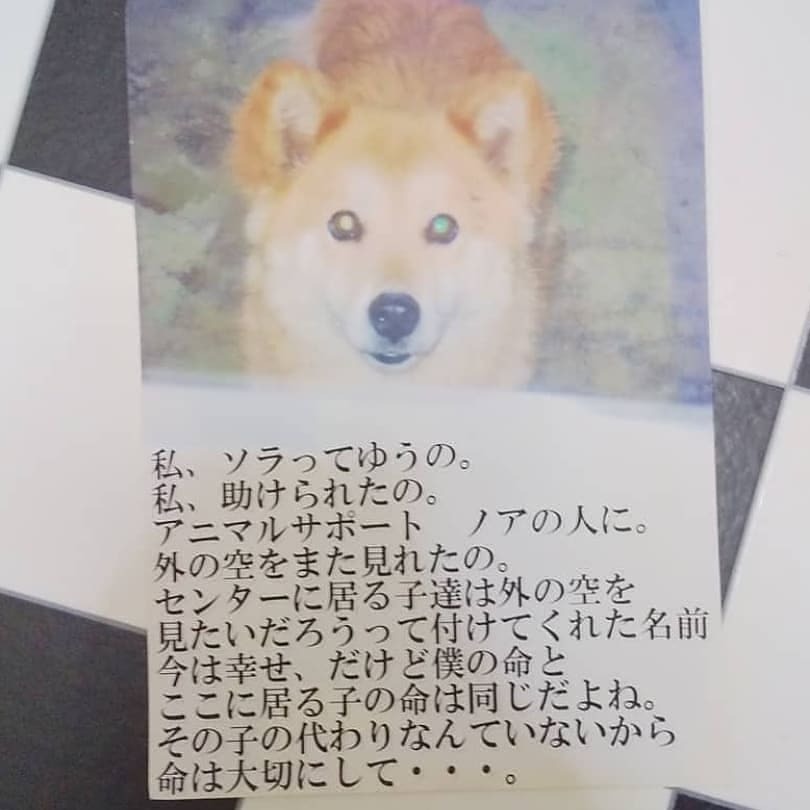 私、ソラってゆうの。
私、助けられたの。
アニマルサポート　ノアの人に。
外の空をまた見れたの。
センターに居る子達は外の空を
見たいだろうって付けてくれた名前
今は幸せ、だけど僕の命と
ここに居る子の命は同じだよね。
その子の代わりなんていないから
命は大切にして・・・。